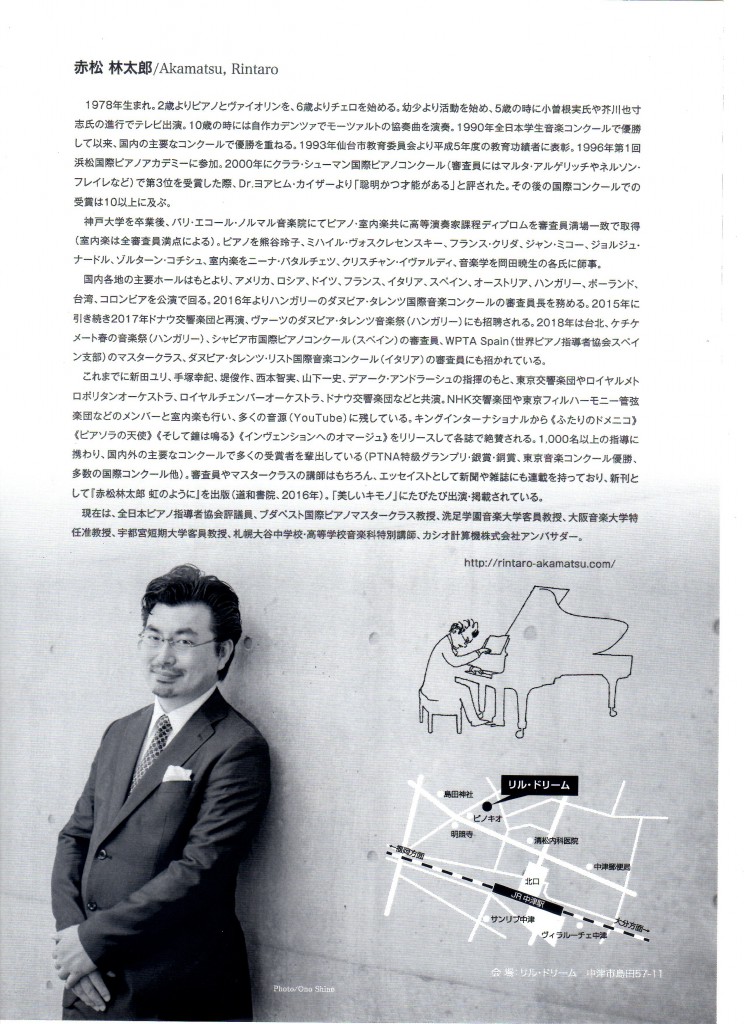 赤松 林太郎/Akamatsu, Rintaro
1978年生まれ。2歳よりピアノとヴァイオリンを、6歳よりチェロを始める。幼少より活動を始め、5歳の時に小曽根実氏や芥川也寸
志氏の進行でテレビ出演。10歳の時には自作カデンツァでモーツァルトの協奏曲を演奏。1990年全日本学生音楽コンクールで優勝
して以来、国内の主要なコンクールで優勝を重ねる。1993年仙台市教育委員会より平成5年度の教育功績者に表彰。1996年第1回
浜松国際ピアノアカデミーに参加。2000年にクララ・シューマン国際ピアノコンクール（審査員にはマルタ・アルゲリッチやネルソン・
フレイレなど）で第3位を受賞した際、Dr.ヨアヒム・カイザーより「聡明かつ才能がある」と評された。その後の国際コンクールでの
受賞は10以上に及ぶ。
神戸大学を卒業後、パリ・エコール・ノルマル音楽院にてピアノ・室内楽共に高等演奏家課程ディプロムを審査員満場一致で取得
（室内楽は全審査員満点による）。ピアノを熊谷玲子、ミハイル・ヴォスクレセンスキー、フランス・クリダ、ジャン・ミコー、ジョルジュ・
ナードル、ゾルターン・コチシュ、室内楽をニーナ・パタルチェツ、クリスチャン・イヴァルディ、音楽学を岡田暁生の各氏に師事。
国内各地の主要ホールはもとより、アメリカ、ロシア、ドイツ、フランス、イタリア、スペイン、オーストリア、ハンガリー、ポーランド、
台湾、コロンビアを公演で回る。2016年よりハンガリーのダヌビア・タレンツ国際音楽コンクールの審査員長を務める。2015年に
引き続き2017年ドナウ交響楽団と再演、ヴァーツのダヌビア・タレンツ音楽祭（ハンガリー）にも招聘される。2018年は台北、ケチケ
メート春の音楽祭（ハンガリー）、シャビア市国際ピアノコンクール（スペイン）の審査員、WPTA Spain（世界ピアノ指導者協会スペイ
ン支部）のマスタークラス、ダヌビア・タレンツ・リスト国際音楽コンクール（イタリア）の審査員にも招かれている。
これまでに新田ユリ、手塚幸紀、堤俊作、西本智実、山下一史、デアーク・アンドラーシュの指揮のもと、東京交響楽団やロイヤルメト
ロポリタンオーケストラ、ロイヤルチェンバーオーケストラ、ドナウ交響楽団などと共演。NHK交響楽団や東京フィルハーモニー管弦
楽団などのメンバーと室内楽も行い、多くの音源（YouTube）に残している。キングインターナショナルから《ふたりのドメニコ》
《ピアソラの天使》《そして鐘は鳴る》《インヴェンションへのオマージュ》をリリースして各誌で絶賛される。1,000名以上の指導に
携わり、国内外の主要なコンクールで多くの受賞者を輩出している（PTNA特級グランプリ・銀賞・銅賞、東京音楽コンクール優勝、
多数の国際コンクール他）。審査員やマスタークラスの講師はもちろん、エッセイストとして新聞や雑誌にも連載を持っており、新刊と
して『赤松林太郎 虹のように』を出版（道和書院、2016年）。「美しいキモノ」にたびたび出演・掲載されている。
現在は、全日本ピアノ指導者協会評議員、ブダペスト国際ピアノマスタークラス教授、洗足学園音楽大学客員教授、大阪音楽大学特
任准教授、宇都宮短期大学客員教授、札幌大谷中学校・高等学校音楽科特別講師、カシオ計算機株式会社アンバサダー。
http://rintaro-akamatsu.com/
リル・ドリーム
島田神社
ピノキオ
明蹟寺
清松内科医院
←豊岡方面
中津郵便局
北口
JR 中津駅
サンリブ中津
大分方面→
ヴィラルーチェ中津
会 場：リル・ドリーム 中津市島田57-11
Photo/Ono Shine